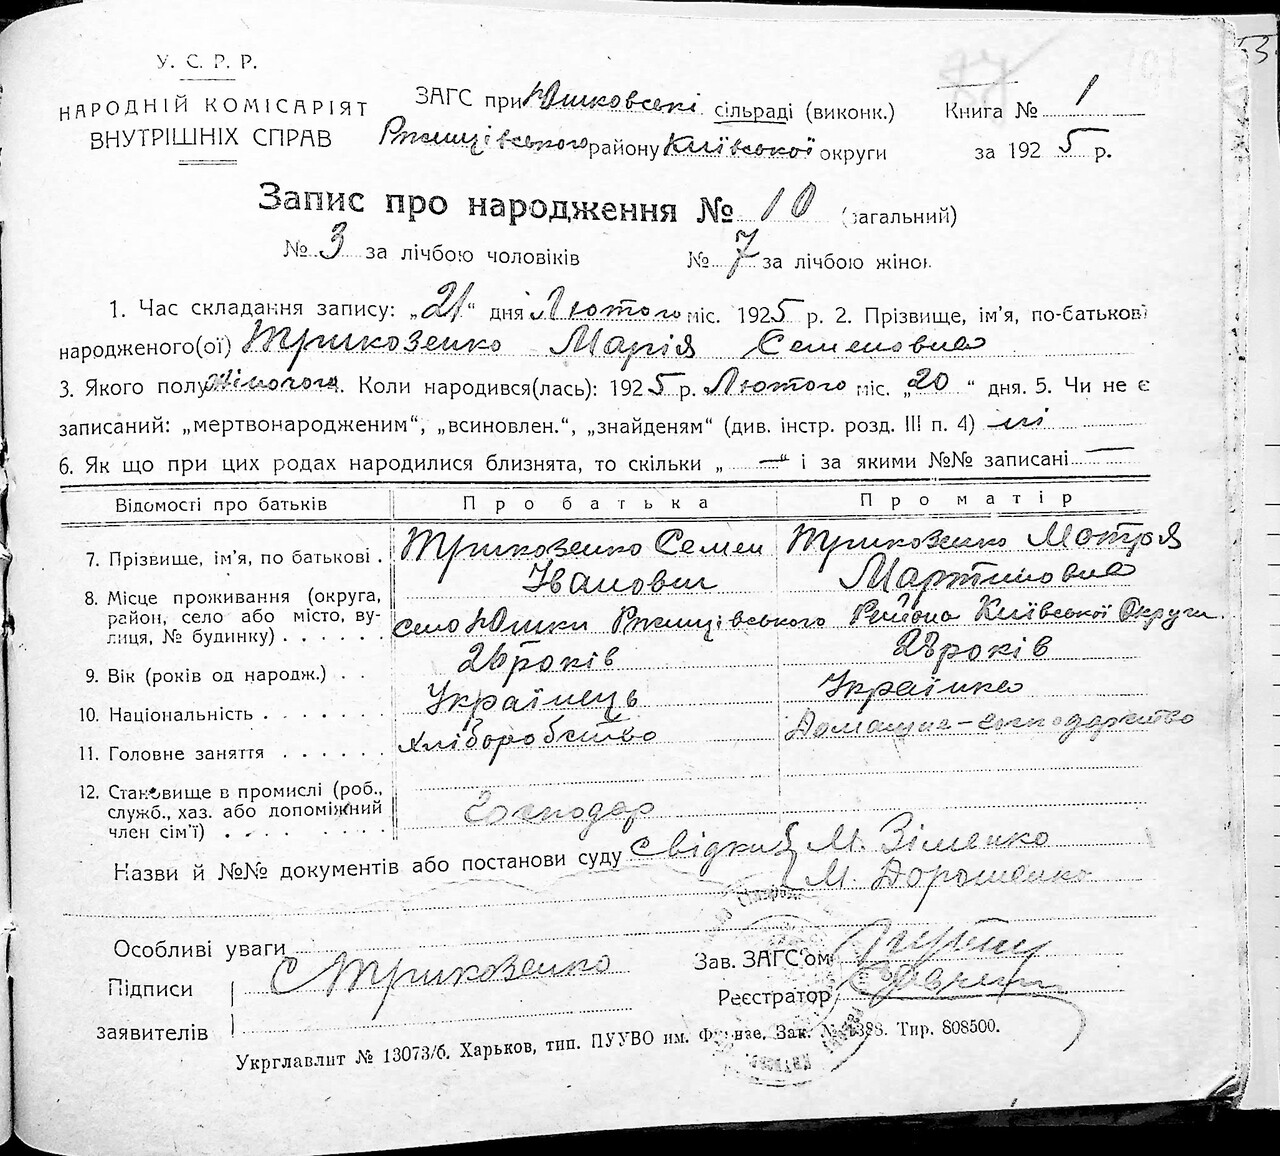 У. С. Р. Р.
НАРОДНІЙ КОМІСАРІЯТ
ВНУТРІШНІХ СПРАВ
ЗАГС при Юшковські сільраді (виконк.)
Ржищівського району Київської округи
Книга № 1
за 1925 р.
53
Запис про народження № 10 (загальний)
№ 3 за лічбою чоловіків № 7 за лічбою жінок
1. Час складання запису: „21“ дня Лютого міс. 1925 р. 2. Прізвище, ім’я, по-батькові
народженого(ої) Трикозенко Марія Семеновна
3. Якого полу жіночого. Коли народився(лась): 1925 р. Лютого міс. „20“ дня. 5. Чи не є
записаний: „мертвонародженим“, „всиновлен.“, „знайденям“ (див. інстр. розд. III п. 4) ні
6. Як що при цих родах народилися близнята, то скільки „ — “ і за якими №№ записані —
Відомості про батьків Про батька Про матір
7. Прізвище, ім’я, по батькові . Трикозенко Семен Іванович Трикозенко Мотря Мартиновна
8. Місце проживання (округа, район, село або місто, вулиця, № будинку) . . . . . . село Юшки Ржищівського Района Київської Округи.
9. Вік (років од народж.) . . 26 років 28 років
10. Національність . . . . . . . Українець Українка
11. Головне заняття . . . . . . Хліборобство Домашнє-господарство
12. Становище в промислі (роб., служб., хаз. або допоміжний член сім’ї) . . . . . . . Господар
Назви й №№ документів або постанови суду Свідки { М. Зіменко
М. Дорошенко
Особливі уваги
Підписи заявителів С Трикозенко
Зав. ЗАГС’ом
Реєстратор
Укрглавлит № 13073/б. Харьков, тип. ПУУВО им. Фрунзе. Зак. № 1398. Тир. 808500.